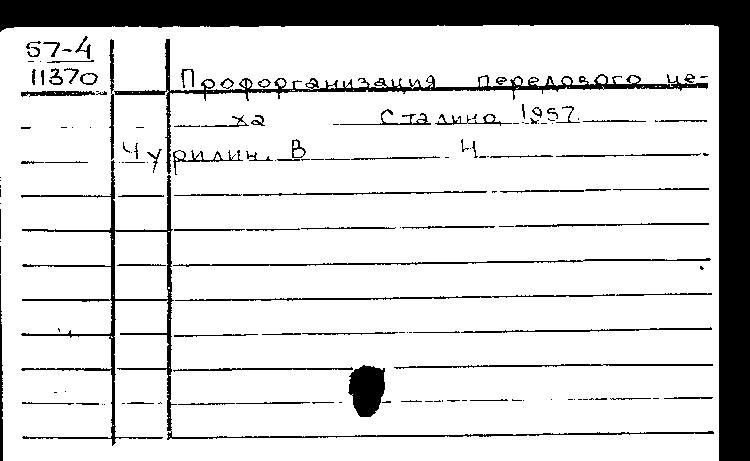 57-4
11370 Профорганизация передового це-
ха Сталино, 1957
Чурилин, В Ч